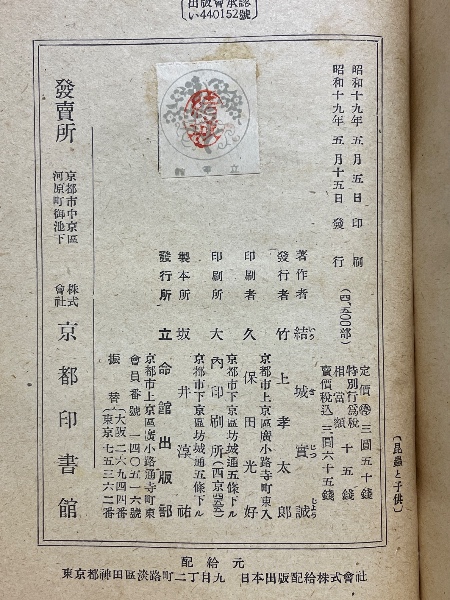 出版會承認
い440152號
昭和十九年五月五日印刷
昭和十九年五月十五日發行
(四、五〇〇部)
定價 三圓五十錢
特別行爲税相當額 十五錢
賣價税込 三圓六十五錢
〔昆蟲と子供〕
著作者 結城實誠
發行者 竹上孝太郎
京都市上京區廣小路寺町東入
印刷者 久保田光好
京都市下京區坊城通五條下ル
印刷所 大内印刷所(西京
京都市下京區坊城通五條下ル
製本所 坂井淳祐
發行所 立命館出版部
京都市上京區廣小路通寺町東
會員番號一四〇五一六號
振替(大阪二六九四四番
東京七五三六二番
發賣所
京都市中京區
河原町御池下
株式會社 京都印書館
配給元
東京都神田區淡路町二丁目九 日本出版配給株式會社